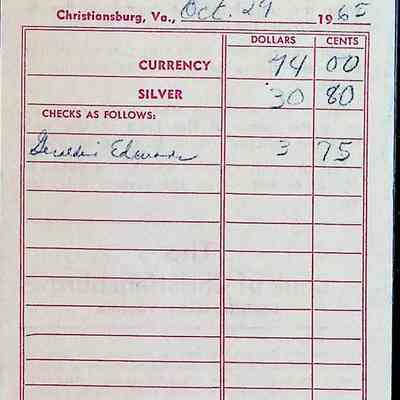 Christiansburg, Va., Oct. 29 1965
DOLLARS CENTS
CURRENCY 44 00
SILVER 30 80
CHECKS AS FOLLOWS:
Geraldine Edwards 3 75